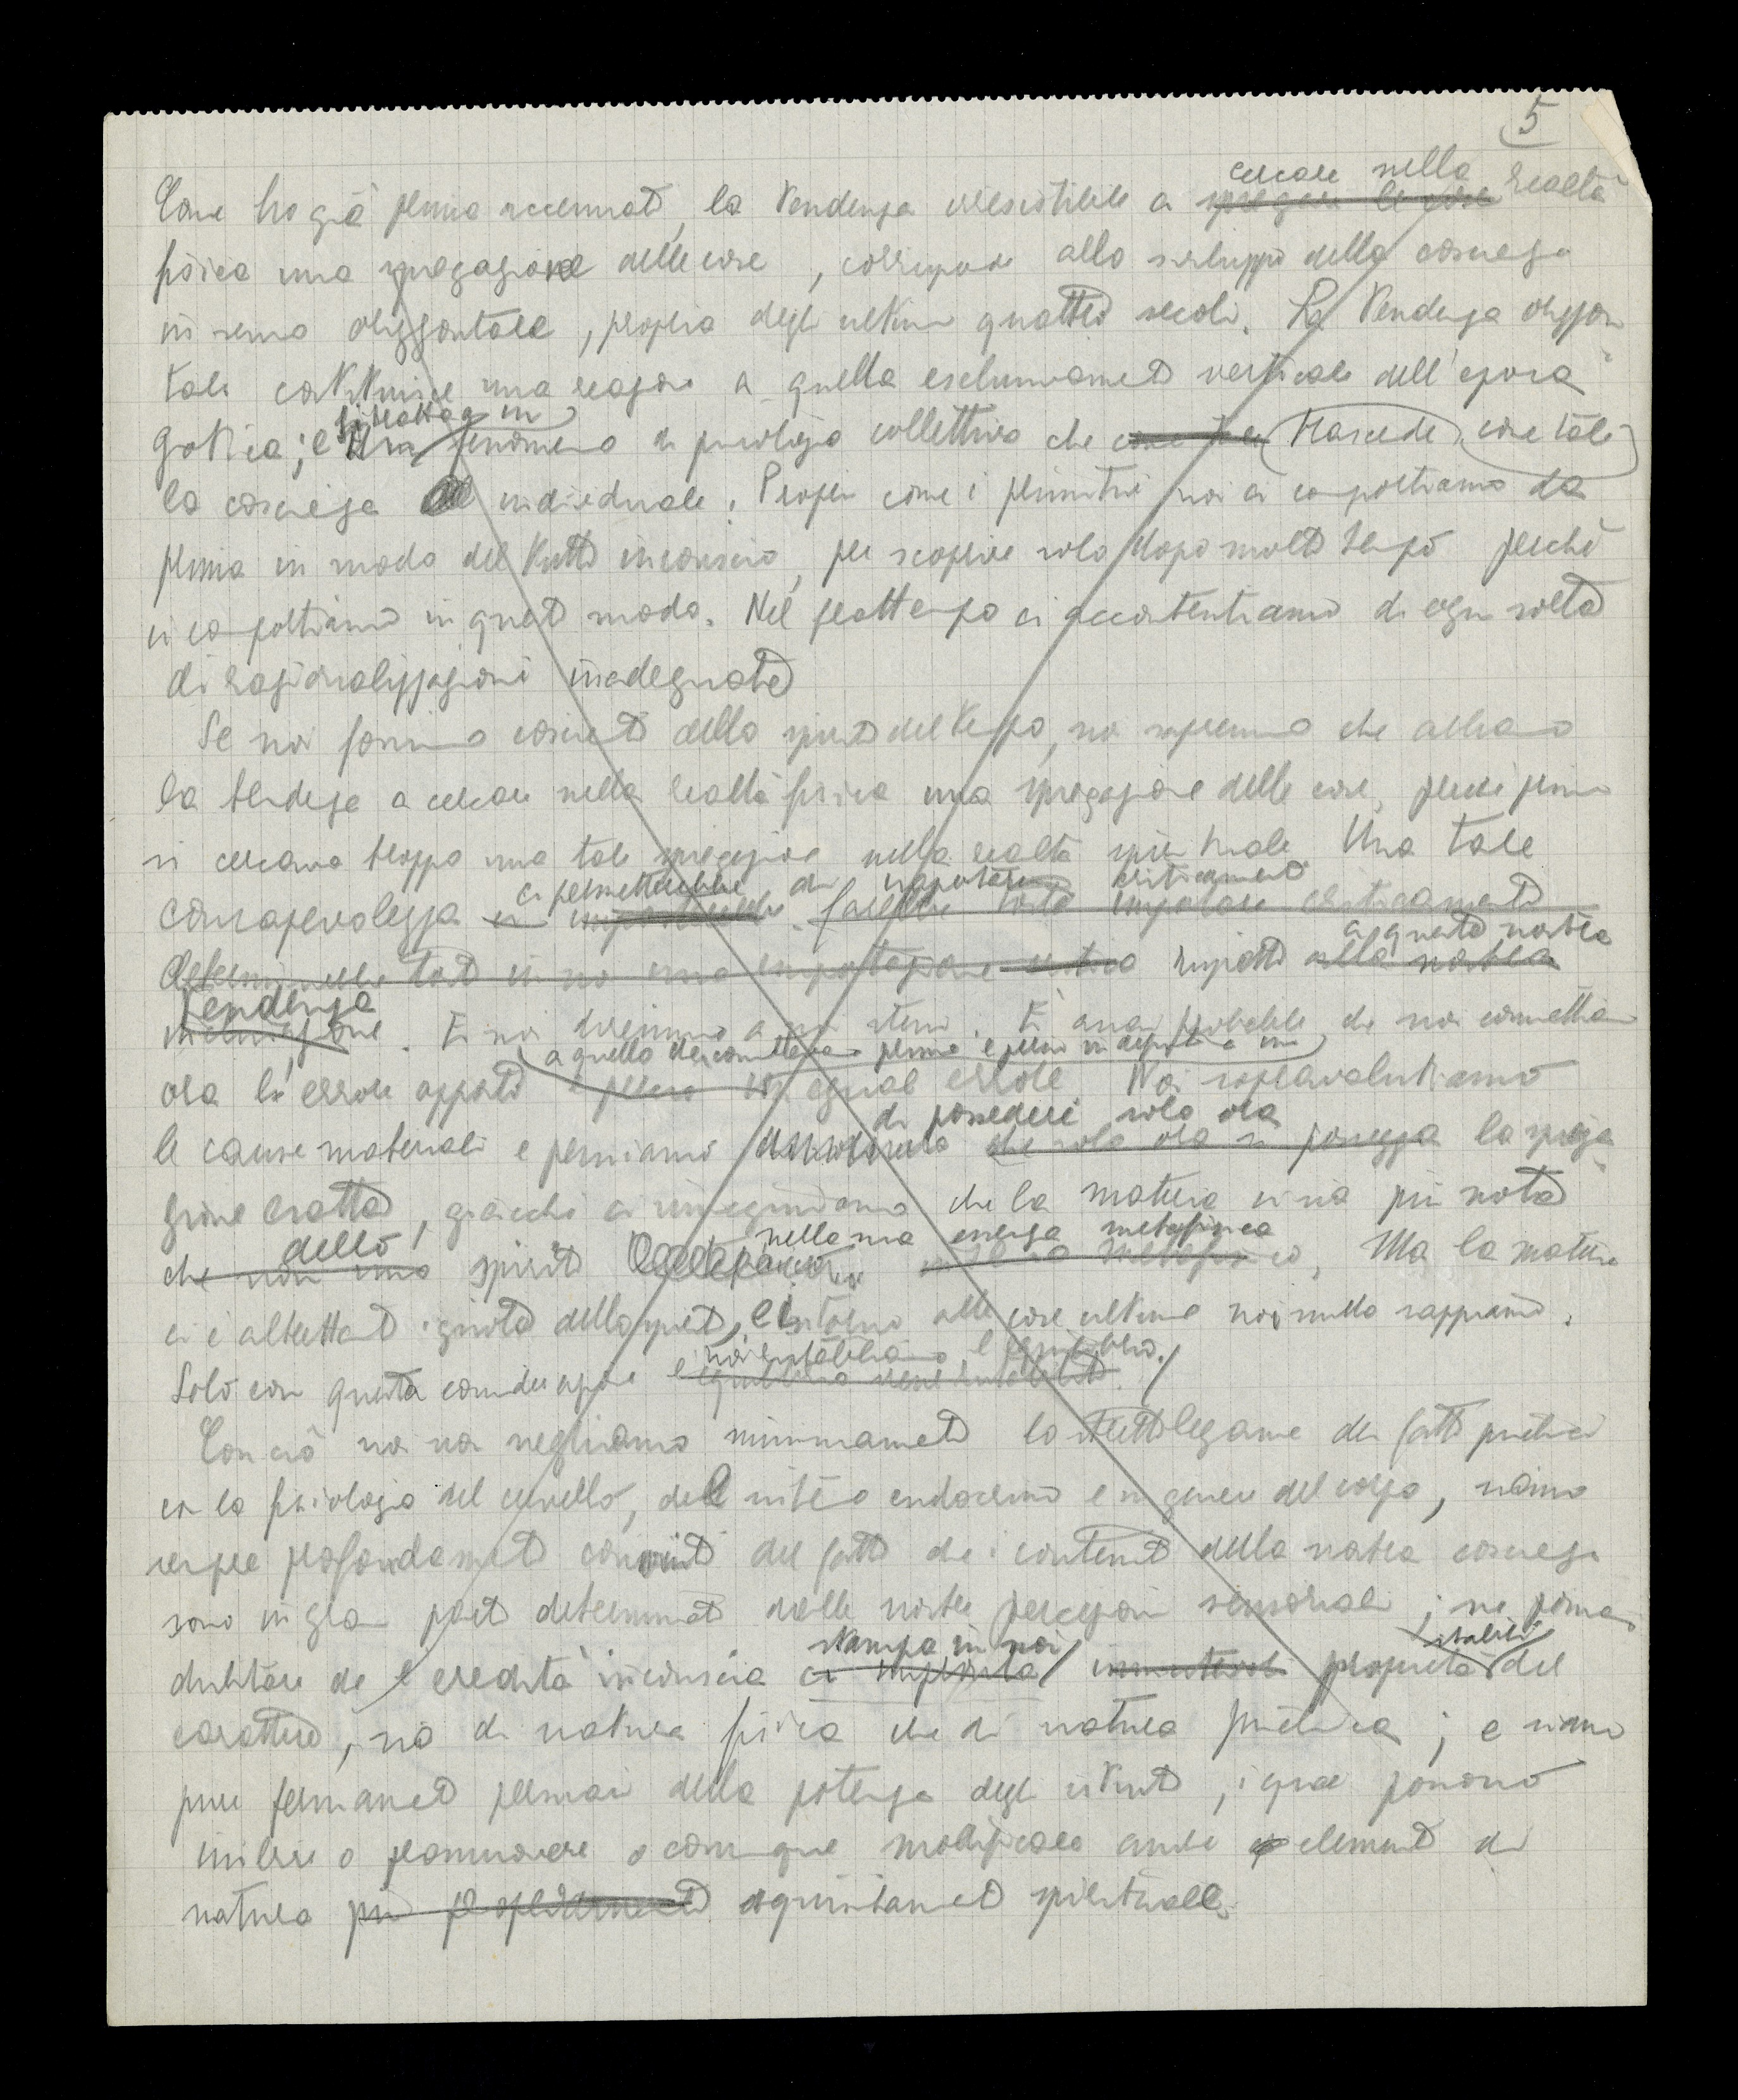 5
cercare nella
Come ho già prima accennato, la tendenza irresistibile a spiegare le cose realtà
fisica una spiegazione delle cose, corrisponde allo sviluppo della coscienza
in senso orizzontale, propria degli ultimi quattro secoli. La tendenza orizzon
tale costituisce una reazione a quella esclusivamente verticale dell'epoca
si tratta di un
gotica; è un fenomeno di psicologia collettiva che come tale trascende, come tale,
la coscienza individuale. Proprio come i primitivi noi ci comportiamo da
prima in modo del tutto inconscio, per scoprire solo dopo molto tempo perché
ci comportiamo in questo modo. Nel frattempo ci accontentiamo di ogni sorta
di razionalizzazioni inadeguate
Se noi fossimo coscienti dello spirito del tempo, noi sapremmo che abbiamo
la tendenza a cercare nella realtà fisica una spiegazione delle cose, perché prima
si cercava troppo una tale spiegazione nella realtà spirituale. Una tale
ci permetterebbe di criticamente
consapevolezza ci farebbe tosto impostare criticamente
a questa nostra
una impostazione critica rispetto alla nostra
tendenza
inclinazione. E noi diremmo a noi stessi. È assai probabile che noi commettiamo
a quello che commettevamo prima e perciò in fondo un
ora l'errore opposto e perciò un egual errore. Noi sopravalutiamo
di possedere solo ora
le cause materiali e pensiamo che solo ora si possegga la spiega
zione esatta, giacché ci immaginiamo che la materia ci sia più nota
dello nella sua essenza metafisica
che non uno spirito metafisico. Ma la materia
ci è altrettanto ignota dello spirito, e intorno alle cose ultime noi nulla sappiamo.
noi ristabiliamo l'equilibrio.
Solo con questa considerazione l'equilibrio viene ristabilito.
Con ciò noi non neghiamo minimamente lo stretto legame dei fatti psichici
con la fisiologia del cervello, del sistema endocrino e in genere del corpo, siamo
sempre profondamente convinti del fatto che i contenuti della nostra coscienza
sono in gran parte determinati dalle nostre percezioni sensoriali; né possiamo
stampa in noi stabili
dubitare che l'eredità inconscia ci imprima immutevoli proprietà del
carattere, sia di natura fisica che di natura psichica; e siamo
pure fermamente persuasi della potenza degli istinti, i quali possono
inibire o promuovere o comunque modificare anche elementi di
natura più squisitamente spirituale.